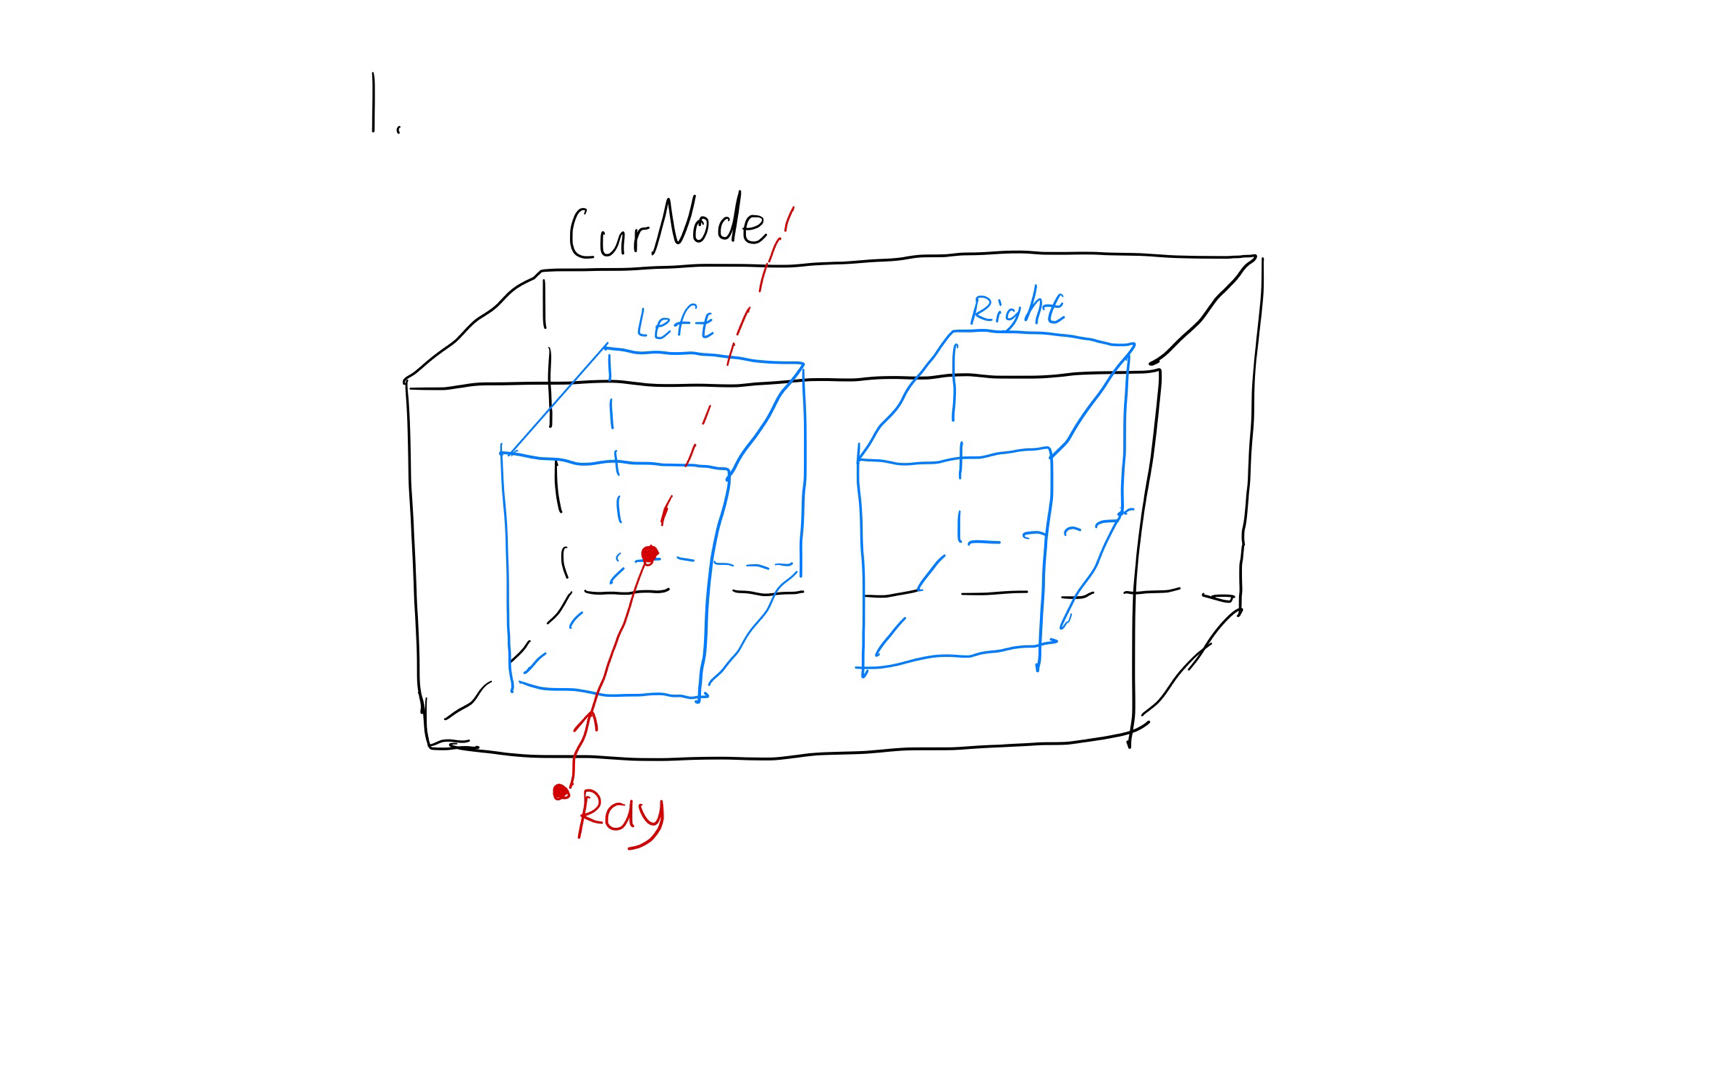 1.
CurNode
Left
Right
Ray